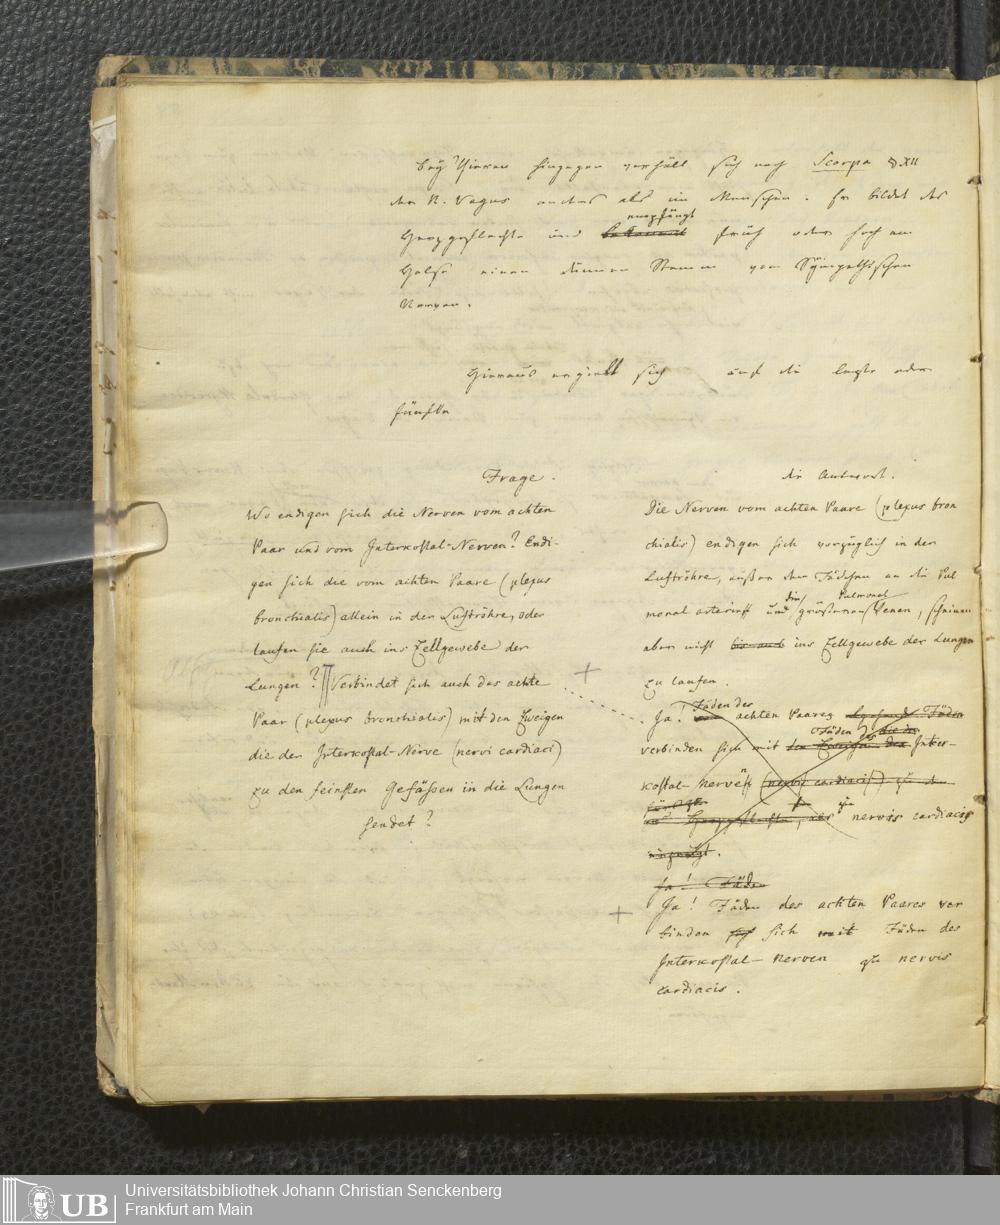 bey Thieren hingegen verhält sich nach Scarpa § XII
der N. Vagus anders als im Menschen. Er bildet das
empfängt
Herzgeflechte und bekommt früh oder hoch am
Halse einen dünnen Stamm vom Sÿmpathischen
Nerven.
Hieraus ergiebt sich auch die letzte oder
fünfte
Frage.
Wo endigen sich die Nerven vom achten
Paar und vom Interkostal-Nerven? Endi-
gen sich die vom achten Paare (plexus
bronchialis) allein in der Luftröhre, oder
laufen sie auch ins Zellgewebe der
Lungen? Verbindet sich auch das achte
Paar (plexus bronchialis) mit den Zweigen
die der Interkostal-Nerve (nervi cardiaci)
zu den feinsten Gefäßen in die Lungen
sendet?
die Antwort.
Die Nerven vom achten Paare (plexus bron
chialis) endigen sich vorzüglich in der
Luftröhre, außer den Fädchen an die Pul
monal arterien und die größeren Pulmonal Venen, scheinen
aber nicht bis auch ins Zellgewebe der Lungen
zu laufen.
Ja! Fäden des achten Paares
verbinden sich mit Fäden des Inter-
kostal-Nerven (nervis cardiacis) zu
nervis cardiacis
Ja! Fäden
Ja! Fäden des achten Paares ver
binden sich mit Fäden des
Interkostal-Nerven zu nervis
cardiacis.
Universitätsbibliothek Johann Christian Senckenberg
Frankfurt am Main
UB